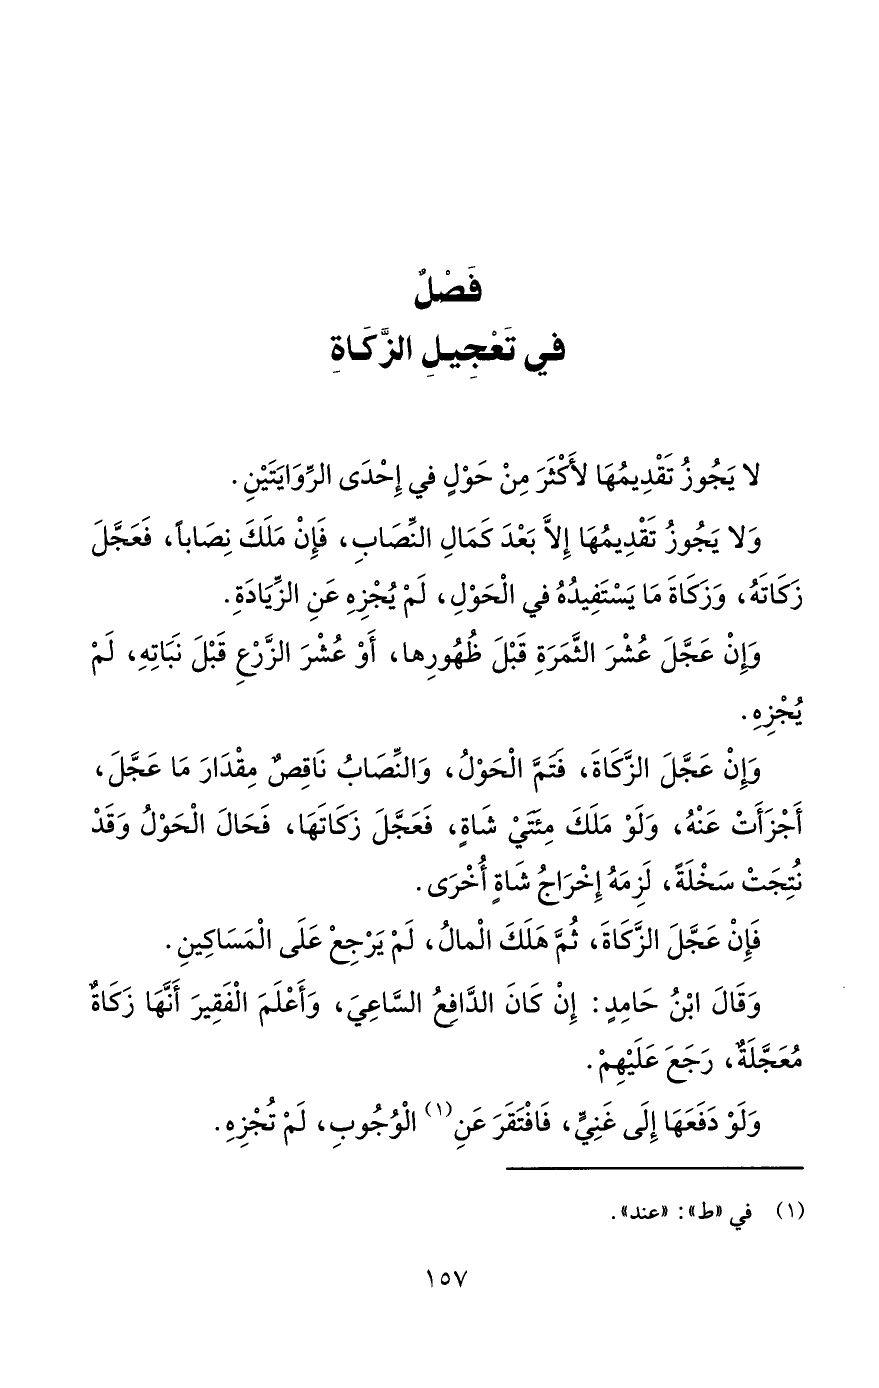 فَصْلٌ
في تَعْجِيلِ الزَّكَاةِ
لا يَجُوزُ تَقْدِيمُهَا لأَكْثَرَ مِنْ حَوْلٍ في إِحْدَى الرِّوَايَتَيْنِ.
وَلا يَجُوزُ تَقْدِيمُهَا إِلاَّ بَعْدَ كَمَالِ النِّصَابِ، فَإِنْ مَلَكَ نِصَاباً، فَعَجَّلَ
زَكَاتَهُ، وَزَكَاةَ مَا يَسْتَفِيدُهُ في الْحَوْلِ، لَمْ يُجْزِهِ عَنِ الزِّيَادَةِ.
وَإِنْ عَجَّلَ عُشْرَ الثَّمَرَةِ قَبْلَ ظُهُورِها، أَوْ عُشْرَ الزَّرْعِ قَبْلَ نَبَاتِهِ، لَمْ
يُجْزِهِ.
وَإِنْ عَجَّلَ الزَّكَاةَ، فَتَمَّ الْحَوْلُ، وَالنِّصَابُ نَاقِصٌ مِقْدَارَ مَا عَجَّلَ،
أَجْزَأَتْ عَنْهُ، وَلَوْ مَلَكَ مِئَتَيْ شَاةٍ، فَعَجَّلَ زَكَاتَهَا، فَحَالَ الْحَوْلُ وَقَدْ
نُتِجَتْ سَخْلَةً، لَزِمَهُ إِخْرَاجُ شَاةٍ أُخْرَى.
فَإِنْ عَجَّلَ الزَّكَاةَ، ثُمَّ هَلَكَ الْمالُ، لَمْ يَرْجِعْ عَلَى الْمَسَاكِينِ.
وَقَالَ ابْنُ حَامِدٍ: إِنْ كَانَ الدَّافِعُ السَّاعِيَ، وَأَعْلَمَ الْفَقِيرَ أَنَّهَا زَكَاةٌ
مُعَجَّلَةٌ، رَجَعَ عَلَيْهِمْ.
وَلَوْ دَفَعَهَا إِلَى غَنِيٍّ، فَافْتَقَرَ عَنِ(١) الْوُجُوبِ، لَمْ تُجْزِهِ.
(١) في «ط»: «عند».
١٥٧